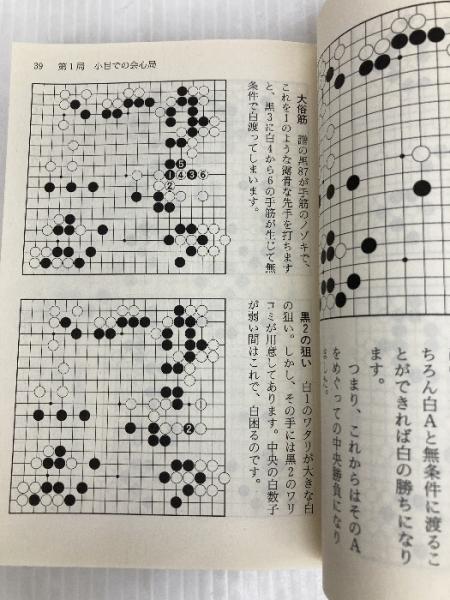 39　第1局　小目での会心局
大俗筋　譜の黒87が手筋のノゾキで、
これを1のような露骨な先手を打ちます
と、黒3に白4から6の手筋が生じて無
条件で白渡ってしまいます。
❺
❶④❸⑥
②
黒2の狙い　白1のワタリが大きな白
の狙い。しかし、その手には黒2のワリ
コミが用意してあります。中央の白数子
が弱い間はこれで、白困るのです。
①
❷
ちろん白Aと無条件に渡るこ
とができれば白の勝ちになり
ます。
つまり、これからはそのA
をめぐっての中央勝負になり
ました。